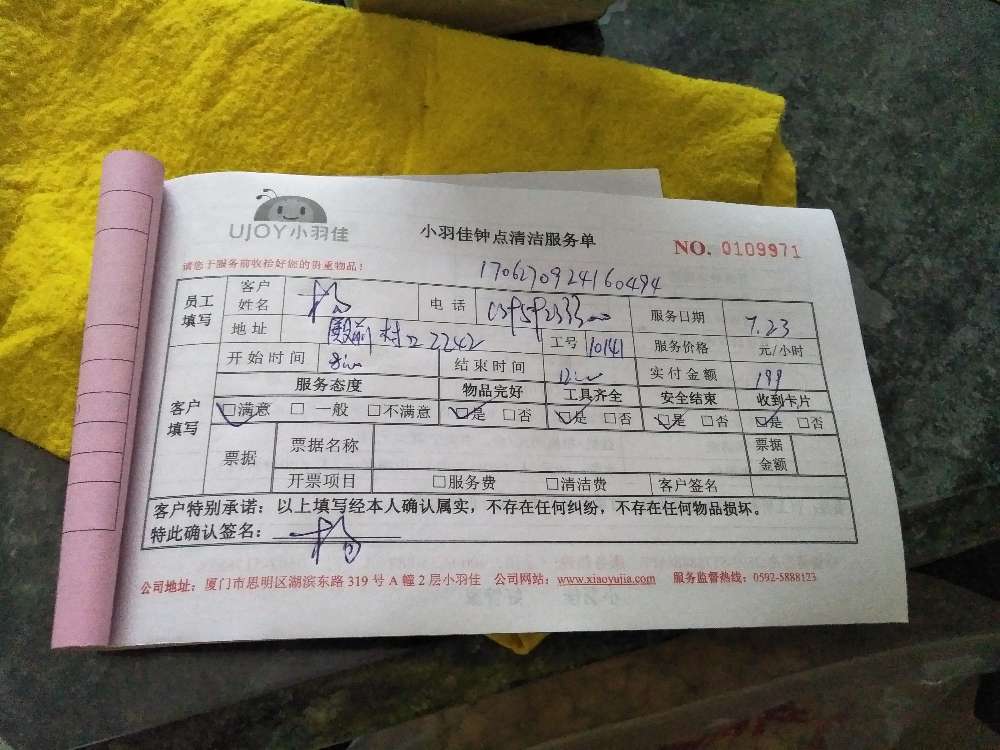 UJOY小羽佳
小羽佳钟点清洁服务单
NO. 0109971
请您于服务前收拾好您的贵重物品!
1706270924160494
员工填写 客户姓名 电话 服务日期 7.23
地址 殿前 2242 工号 10141 服务价格 元/小时
开始时间 结束时间 实付金额 199
客户填写 服务态度 物品完好 工具齐全 安全结束 收到卡片
□满意 □一般 □不满意 □是 □否 □是 □否 □是 □否 □是 □否
票据 票据名称 票据金额
开票项目 □服务费 □清洁费 客户签名
客户特别承诺:以上填写经本人确认属实,不存在任何纠纷,不存在任何物品损坏。
特此确认签名:
公司地址:厦门市思明区湖滨东路 319 号 A 幢 2 层小羽佳 公司网站:www.xiaoyujia.com 服务监督热线:0592-5888123